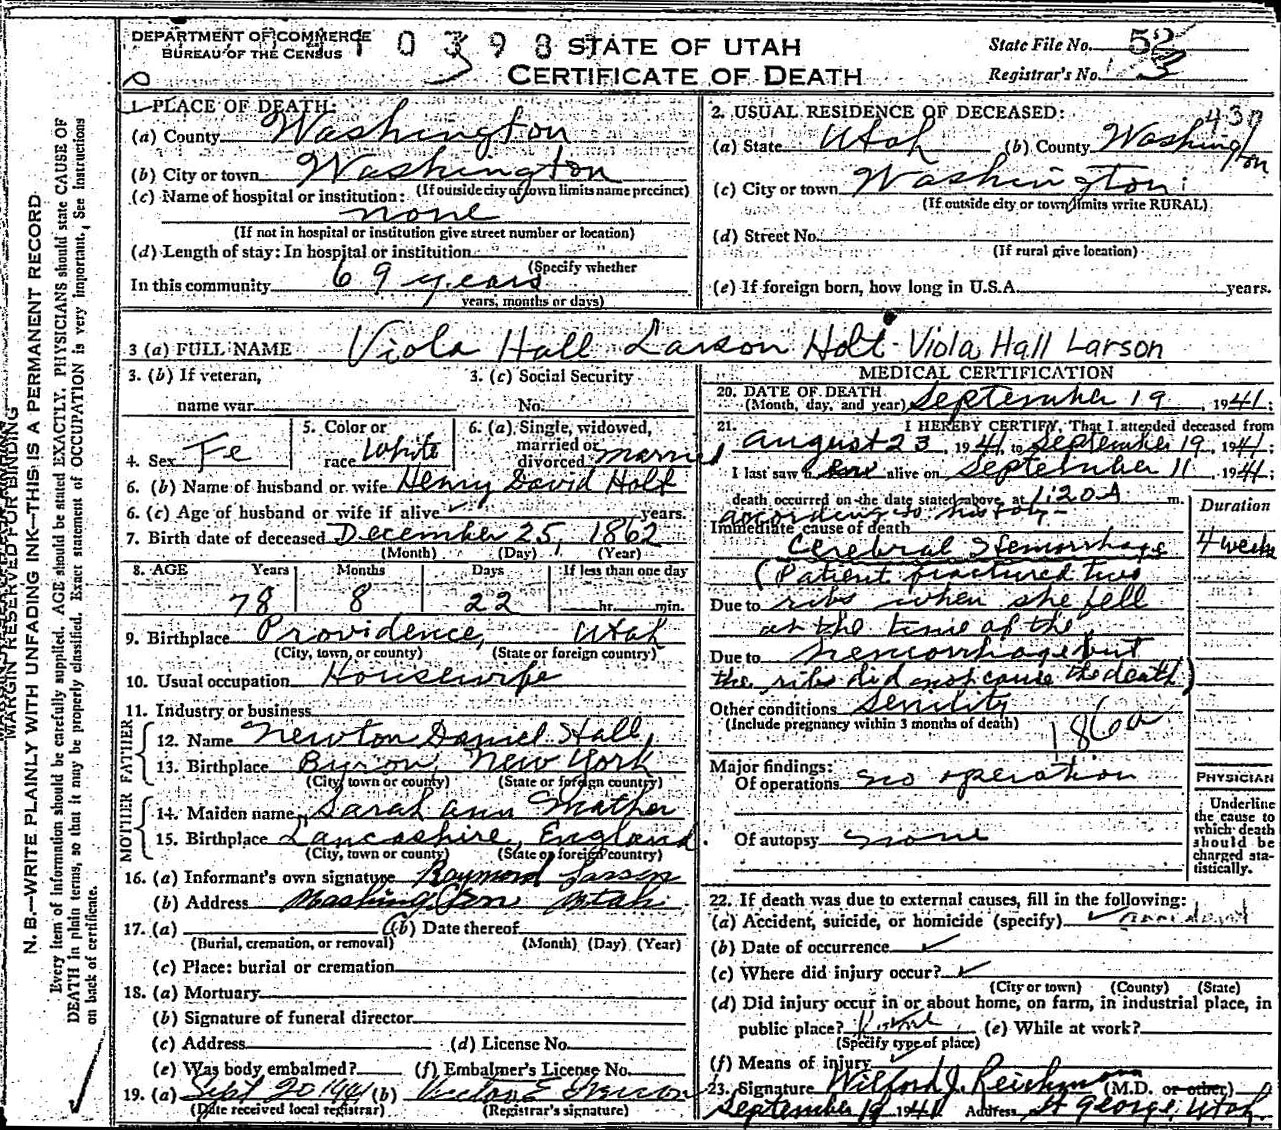 DEPARTMENT OF COMMERCE
BUREAU OF THE CENSUS
0 3 9 8
STATE OF UTAH
CERTIFICATE OF DEATH
State File No. 52
Registrar's No. 3
1. PLACE OF DEATH:
(a) County Washington
(b) City or town Washington
(If outside city or town limits name precinct)
(c) Name of hospital or institution:
none
(If not in hospital or institution give street number or location)
(d) Length of stay: In hospital or institution
(Specify whether
In this community 69 years
years, months or days)
2. USUAL RESIDENCE OF DECEASED:
430
(a) State Utah (b) County Washington
(c) City or town Washington
(If outside city or town limits write RURAL)
(d) Street No.
(If rural give location)
(e) If foreign born, how long in U.S.A. years.
3 (a) FULL NAME Viola Hall Larson Holt - Viola Hall Larson
3. (b) If veteran,
name war
3. (c) Social Security
No.
4. Sex Fe
5. Color or
race White
6. (a) Single, widowed,
married or
divorced married
6. (b) Name of husband or wife Henry David Holt
6. (c) Age of husband or wife if alive years.
7. Birth date of deceased December 25, 1862
(Month) (Day) (Year)
8. AGE Years Months Days If less than one day
78 8 22 hr. min.
9. Birthplace Providence, Utah
(City, town, or county) (State or foreign country)
10. Usual occupation Housewife
11. Industry or business
FATHER
12. Name Newton Daniel Hall
13. Birthplace Byron, New York
(City, town or county) (State or foreign country)
MOTHER
14. Maiden name Sarah Ann Mather
15. Birthplace Lancashire, England
(City, town or county) (State or foreign country)
16. (a) Informant's own signature Raymond Larson
(b) Address Washington Utah
17. (a) (b) Date thereof
(Burial, cremation, or removal) (Month) (Day) (Year)
(c) Place: burial or cremation
18. (a) Mortuary
(b) Signature of funeral director
(c) Address (d) License No.
(e) Was body embalmed? (f) Embalmer's License No.
19. (a) Sept 20 1941 (b)
(Date received local registrar) (Registrar's signature)
MEDICAL CERTIFICATION
20. DATE OF DEATH
(Month, day, and year) September 19, 1941;
21. I HEREBY CERTIFY, That I attended deceased from
August 23, 1941, to September 19, 1941;
I last saw her alive on September 11, 1941;
death occurred on the date stated above, at 1:20 A m.
according to history -
Duration
Immediate cause of death
Cerebral Hemorrhage 4 weeks
(Patient fractured two
Due to ribs when she fell
at the time of the
Due to hemorrhage but
the ribs did not cause the death)
Other conditions Senility
(Include pregnancy within 3 months of death)
186a
Major findings:
Of operations no operation
Of autopsy none
PHYSICIAN
Underline
the cause to
which death
should be
charged sta-
tistically.
22. If death was due to external causes, fill in the following:
(a) Accident, suicide, or homicide (specify) accident
(b) Date of occurrence
(c) Where did injury occur?
(City or town) (County) (State)
(d) Did injury occur in or about home, on farm, in industrial place, in
public place? home (e) While at work?
(Specify type of place)
(f) Means of injury
23. Signature Wilford J. Reichmann (M.D. or other)
September 19 1941 Address St George, Utah.
MARGIN RESERVED FOR BINDING
N. B.—WRITE PLAINLY WITH UNFADING INK—THIS IS A PERMANENT RECORD
Every item of information should be carefully supplied. AGE should be stated EXACTLY. PHYSICIANS should state CAUSE OF
DEATH in plain terms, so that it may be properly classified. Exact statement of OCCUPATION is very important. See instructions
on back of certificate.